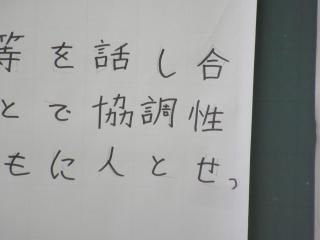 等を話し合
とで協調性
もに人とせっ